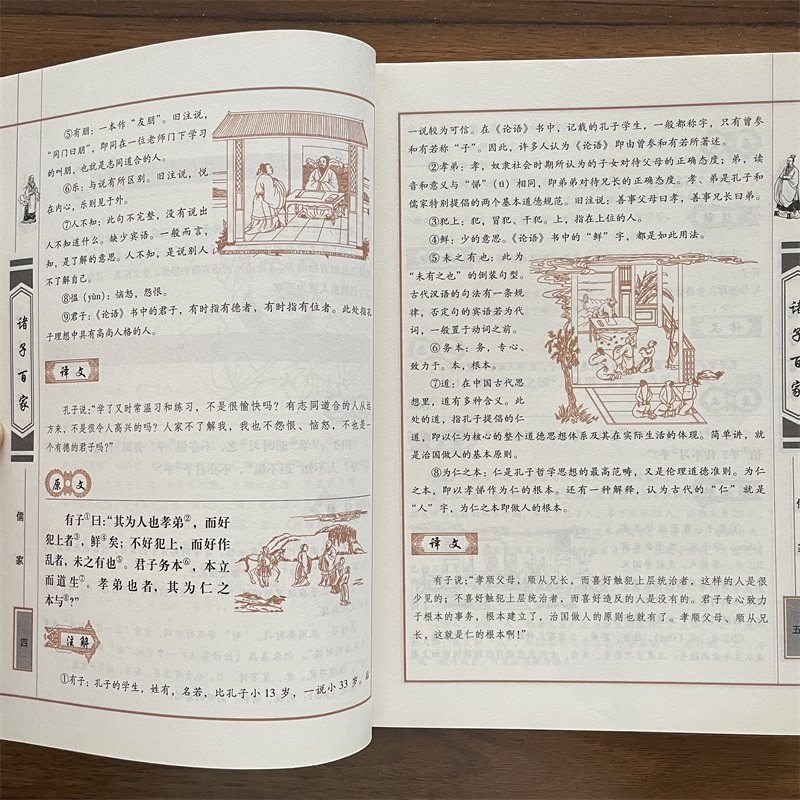 ⑤有朋：一本作“友朋”。旧注说，
“同门曰朋”，即同在一位老师门下学习
的叫朋，也就是志同道合的人。
⑥乐：与说有所区别。旧注说，悦
在内心，乐则见于外。
⑦人不知：此句不完整，没有说出
人不知道什么。缺少宾语。一般而言，
知，是了解的意思。人不知，是说别人
不了解自己。
⑧愠（yùn）：恼怒，怨恨。
⑨君子：《论语》书中的君子，有时指有德者，有时指有位者。此处指孔
子理想中具有高尚人格的人。
译文
孔子说：“学了又时常温习和练习，不是很愉快吗？有志同道合的人从远
方来，不是很令人高兴的吗？人家不了解我，我也不怨恨、恼怒，不也是一
个有德的君子吗？”
原文
有子①曰：“其为人也孝弟②，而好
犯上者③，鲜④矣；不好犯上，而好作
乱者，未之有也⑤。君子务本⑥，本立
而道生⑦。孝弟也者，其为仁之
本与⑧？”
注解
①有子：孔子的学生，姓有，名若，比孔子小 13 岁，一说小 33 岁。后
诸子百家
儒家
四
一说较为可信。在《论语》书中，记载的孔子学生，一般都称字，只有曾参
和有若称“子”。因此，许多人认为《论语》即由曾参和有若所著述。
②孝弟：孝，奴隶社会时期所认为的子女对待父母的正确态度；弟，读
音和意义与“悌”（tì）相同，即弟弟对待兄长的正确态度。孝、弟是孔子和
儒家特别提倡的两个基本道德规范。旧注说：善事父母曰孝，善事兄长曰弟。
③犯上：犯，冒犯、干犯。上，指在上位的人。
④鲜：少的意思。《论语》书中的“鲜”字，都是如此用法。
⑤未之有也：此为
“未有之也”的倒装句型。
古代汉语的句法有一条规
律，否定句的宾语若为代
词，一般置于动词之前。
⑥务本：务，专心、
致力于。本，根本。
⑦道：在中国古代思
想里，道有多种含义。此
处的道，指孔子提倡的仁
道，即以仁为核心的整个道德思想体系及其在实际生活的体现。简单讲，就
是治国做人的基本原则。
⑧为仁之本：仁是孔子哲学思想的最高范畴，又是伦理道德准则。为仁
之本，即以孝悌作为仁的根本。还有一种解释，认为古代的“仁”就是
“人”字，为仁之本即做人的根本。
译文
有子说：“孝顺父母，顺从兄长，而喜好触犯上层统治者，这样的人是很
少见的；不喜好触犯上层统治者，而喜好造反的人是没有的。君子专心致力
于根本的事务，根本建立了，治国做人的原则也就有了。孝顺父母、顺从兄
长，这就是仁的根本啊！”
诸子百家
儒家
五